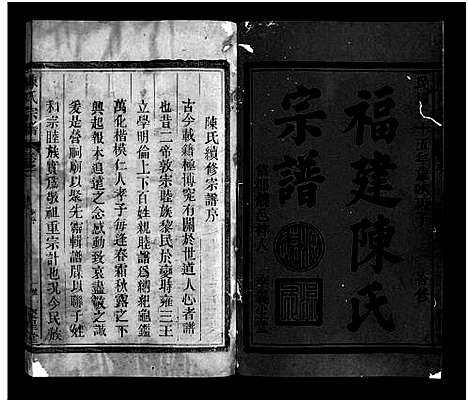 福建陳氏
宗譜
陳氏續修宗譜序
古今載籍極博究有關於世道人心者譜
也昔二帝敦宗睦族黎民於變時雍三王
立學明倫上下百姓親睦譜為綱紀龜鑑
萬化楷模仁人孝子每逢春霜秋露之下
興起報本追遠之念感動致哀盡敬之誠
爰是營祠廟以聚先靈輯譜牒以聯子姓
和宗睦族實為敬祖重宗計也現今民族